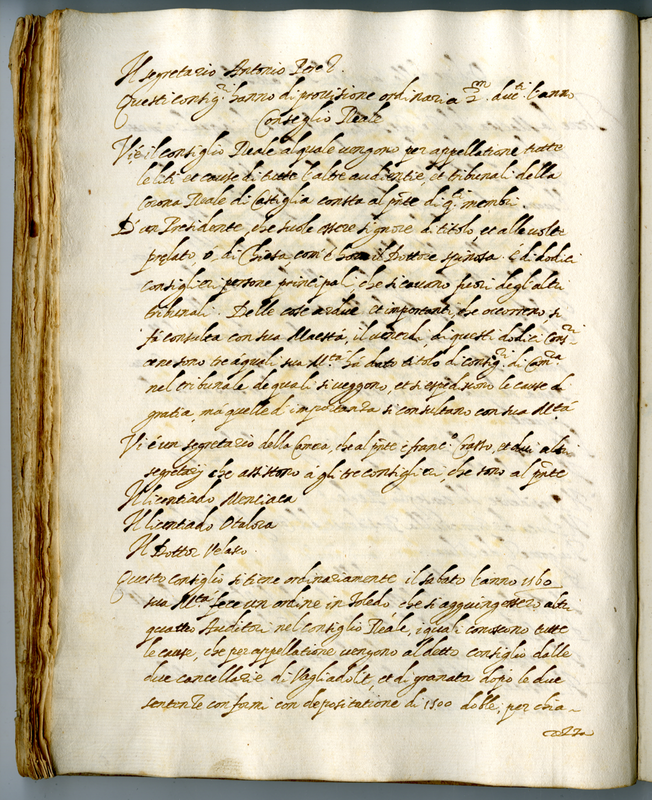 Il segretario Antonio Perez.
Questi consig.ri hanno di provisione ordinaria 2 m. duc.ti l'anno
Conseglio Reale
Vi è il consiglio Reale al quale vengono per appellatione tutte
le liti et cause di tutte l'altre audientie, et tribunali della
Corona Reale di Castiglia consta al pnte di q.ti membri.
D'un Presidente, che suole essere signore di titolo et alle volte
prelato, ò di Chiesa, com'è hora il Dottore spinosa. È di dodici
consiglieri persone principali, che si cavano fuori degl'altri
tribunali. Delle cose ardue et importanti, che occorrono si
fà consulta con sua Maestà, il venerdi di questi dodici Cons.ri
ce ne sono tre a quali sua M.tà hà dato titolo di consig.ri di Cam.a
nel tribunale de quali si veggono, et si espediscono le cause di
gratia, ma quelle d'importanza si consultano con sua M.tà
Vi è un segretario della Camera, che al pnte è franc.o Erasso, et dui altri
segretarij che assistono à gli tre consiglieri, che sono al pnte
Il licentiado Menciaca
Il licentiado Otalora
Il Dottor Velasco.
Questo consiglio si tiene ordinariamente il sabato l'anno 1560
sua M.tà fece un ordine in Toledo che si aggiungessero altri
quattro Auditori nel consiglio Reale, i quali conoscono tutte
le cause, che per appellatione vengono al detto consiglio dalle
due cancellarie di Vagliadolit, et di granata dopò le due
sentenze conformi con depositatione di 1500 doble, per chia-